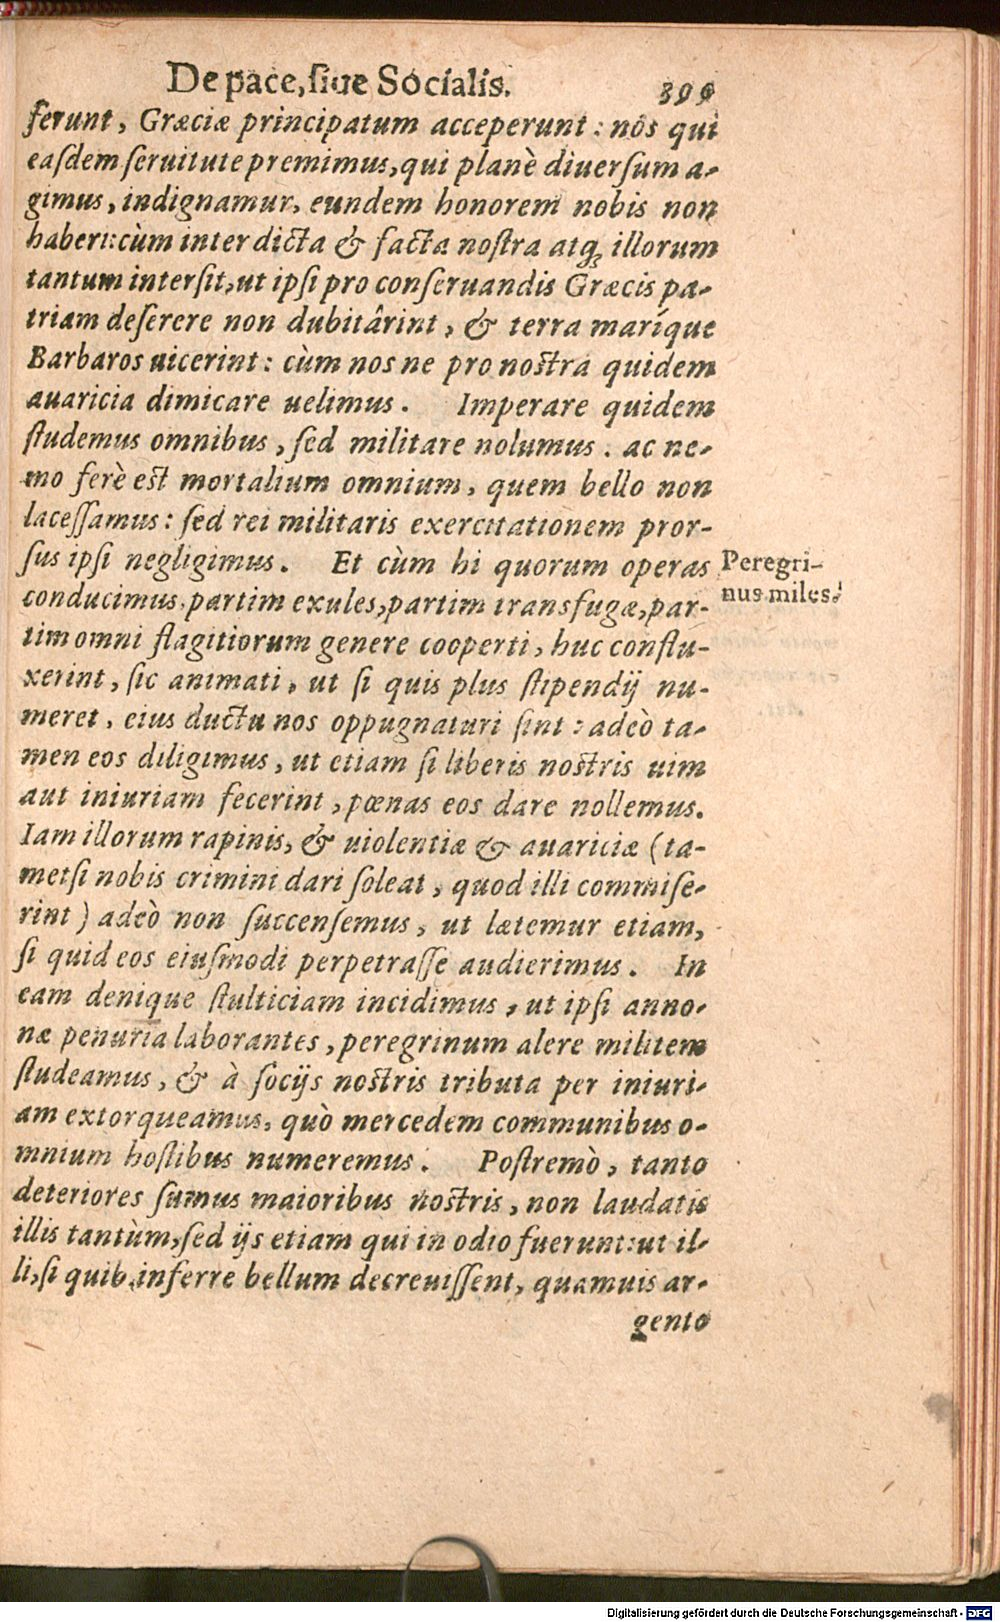 De pace, ſiue Socialis. 399
ferunt, Græciæ principatum acceperunt: nos qui
easdem ſeruitute premimus, qui planè diuerſum a-
gimus, indignamur, eundem honorem nobis non
haberi: cùm inter dicta & facta noſtra atq; illorum
tantum interſit, ut ipſi pro conſeruandis Græcis pa-
triam deſerere non dubitârint, & terra maríque
Barbaros uicerint: cùm nos ne pro noſtra quidem
auaricia dimicare uelimus. Imperare quidem
ſtudemus omnibus, ſed militare nolumus. ac ne-
mo ferè eſt mortalium omnium, quem bello non
laceſſamus: ſed rei militaris exercitationem pror-
ſus ipſi negligimus. Et cùm hi quorum operas
Peregri-
nus miles.
conducimus, partim exules, partim transfugæ, par-
tim omni flagitiorum genere cooperti, huc conflu-
xerint, ſic animati, ut ſi quis plus ſtipendij nu-
meret, eius ductu nos oppugnaturi ſint: adeò ta-
men eos diligimus, ut etiam ſi liberis noſtris uim
aut iniuriam fecerint, pœnas eos dare nollemus.
Iam illorum rapinis, & uiolentiæ & auariciæ (ta-
metſi nobis crimini dari ſoleat, quod illi commiſe-
rint) adeò non ſuccenſemus, ut lætemur etiam,
ſi quid eos eiuſmodi perpetraſſe audierimus. In
eam denique ſtulticiam incidimus, ut ipſi anno-
næ penuria laborantes, peregrinum alere militem
ſtudeamus, & à ſocijs noſtris tributa per iniuri-
am extorqueamus, quò mercedem communibus o-
mnium hoſtibus numeremus. Poſtremò, tanto
deteriores ſumus maioribus noſtris, non laudatis
illis tantùm, ſed ijs etiam qui in odio fuerunt: ut il-
li, ſi quib. inferre bellum decreuiſſent, quamuis ar-
gento
Digitalisierung gefördert durch die Deutsche Forschungsgemeinschaft - DFG